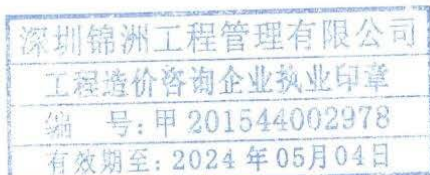 深圳锦洲工程管理有限公司
工程造价咨询企业执业印章
编 号:甲 201544002978
有效期至:2024 年 05月 04日